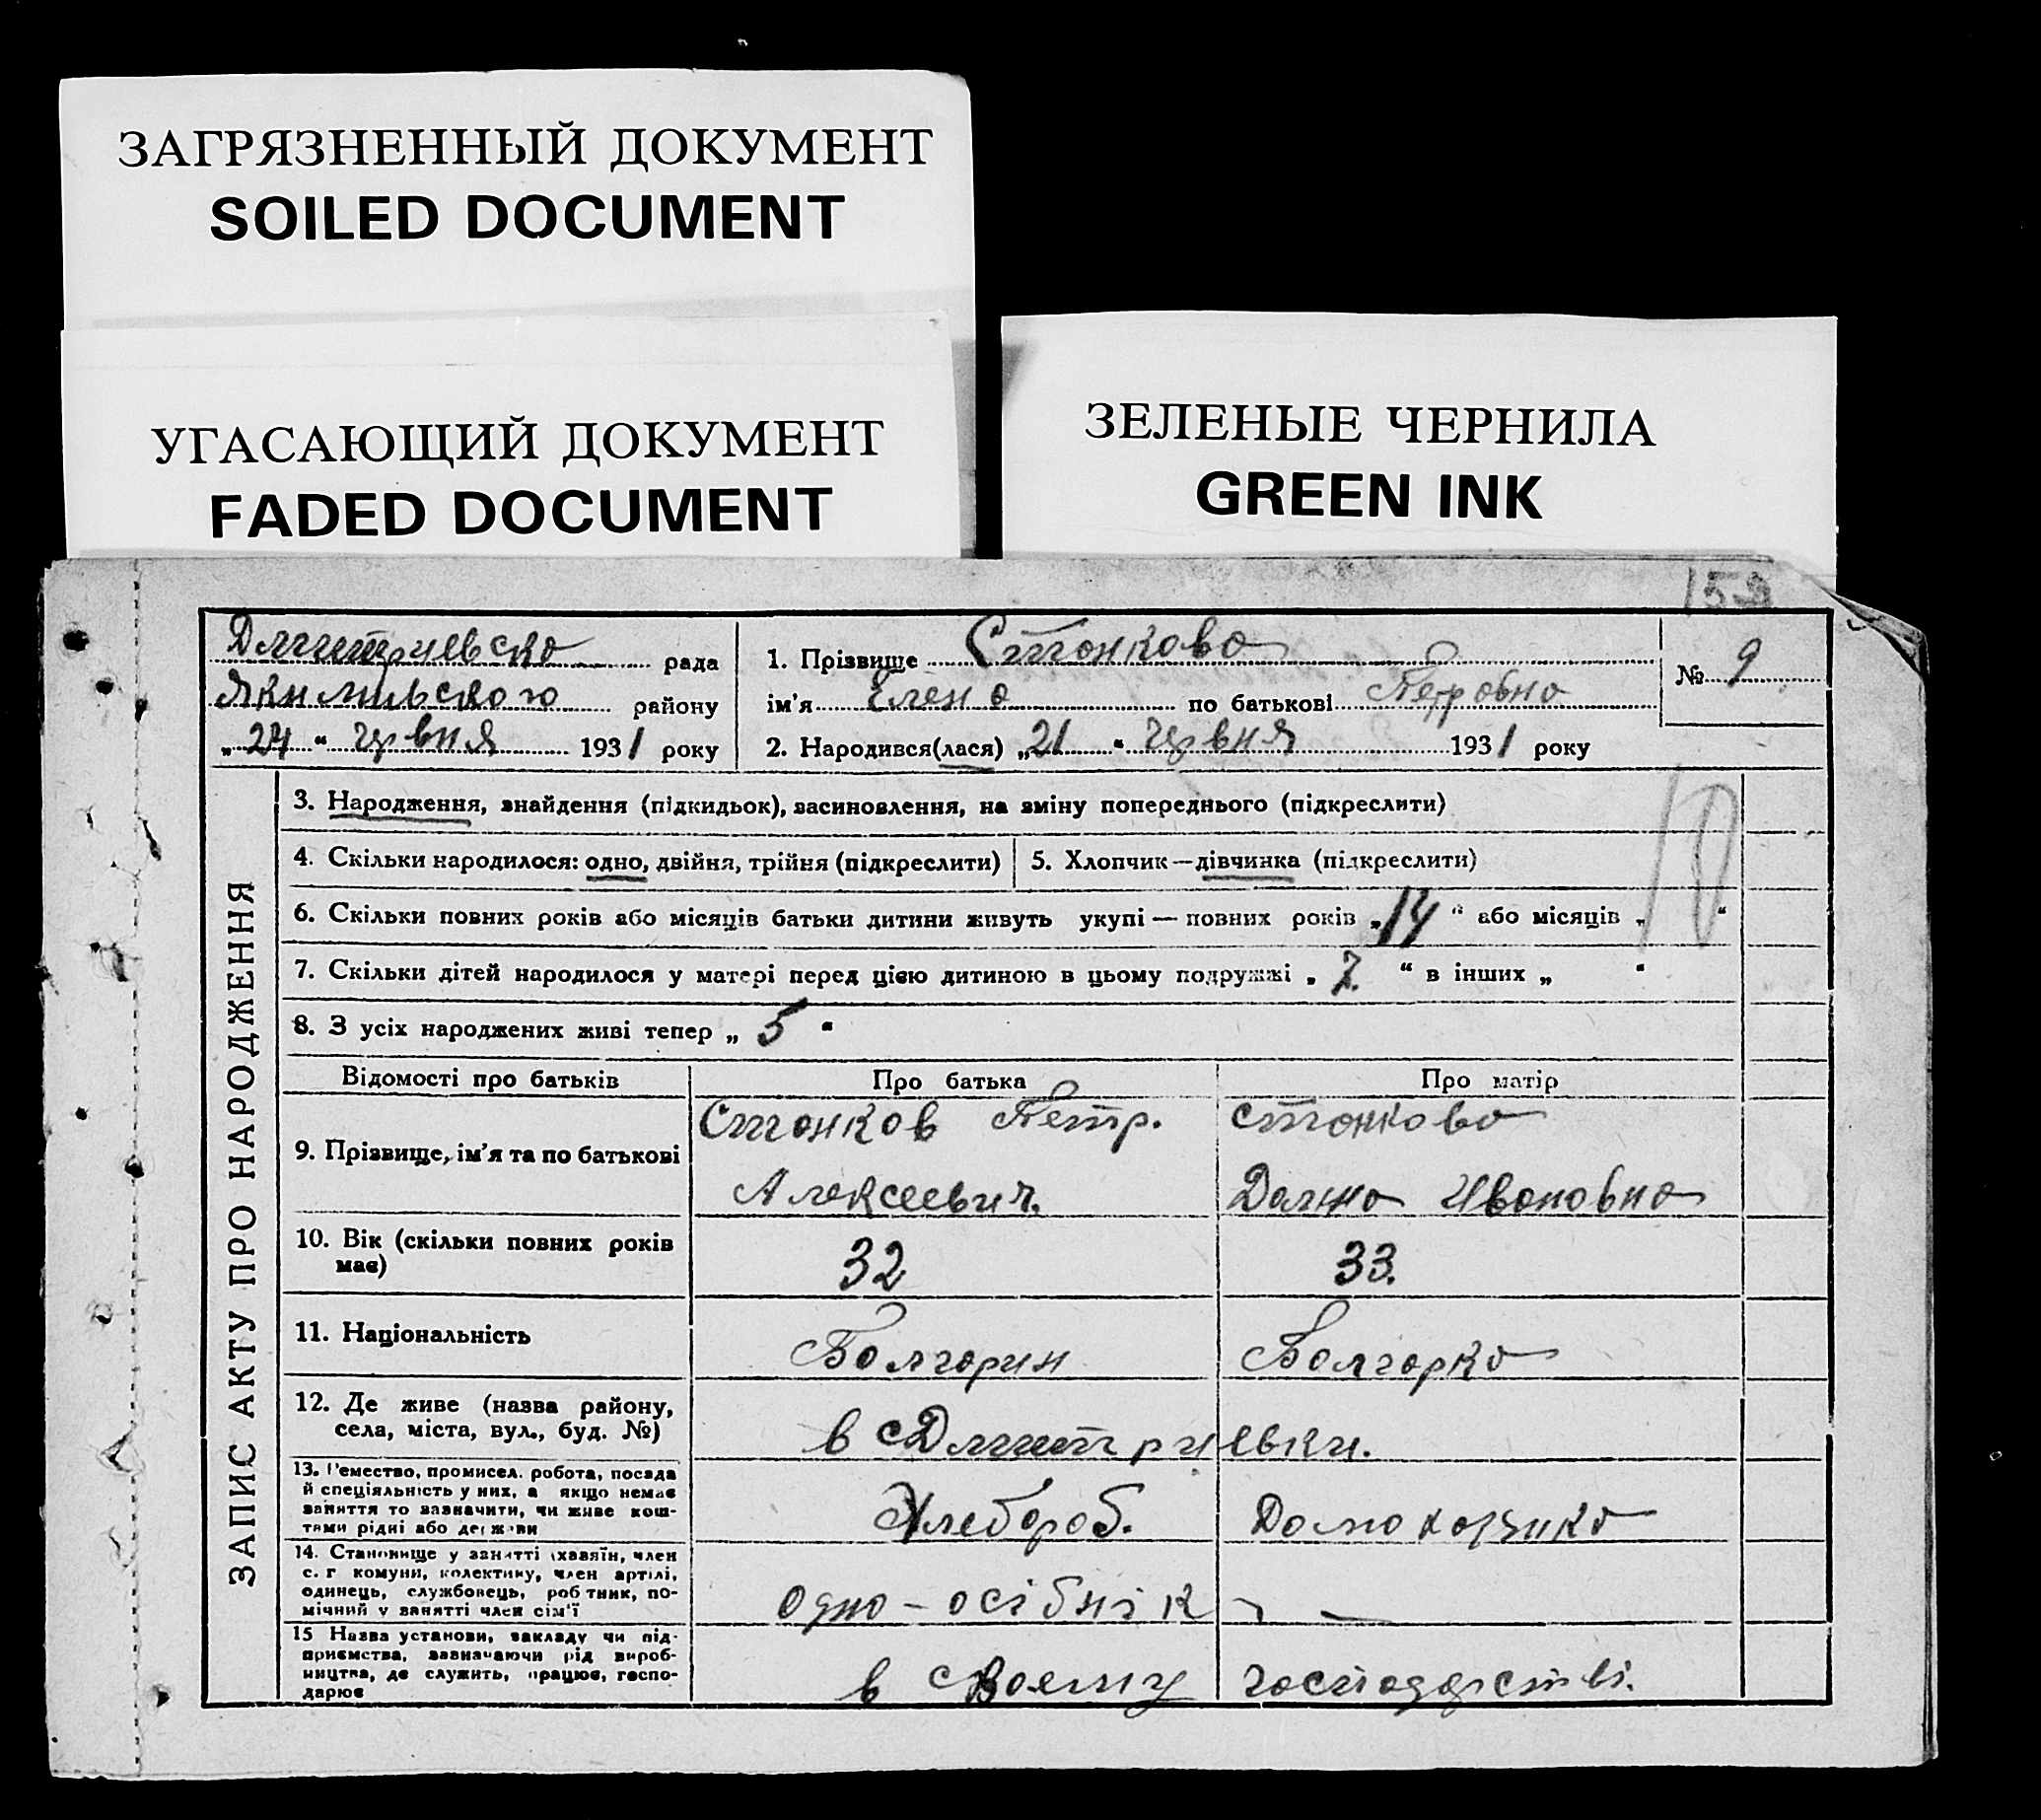 ЗАГРЯЗНЕННЫЙ ДОКУМЕНТ
SOILED DOCUMENT
УГАСАЮЩИЙ ДОКУМЕНТ
FADED DOCUMENT
ЗЕЛЕНЫЕ ЧЕРНИЛА
GREEN INK
ЗАПИС АКТУ ПРО НАРОДЖЕННЯ
Дмитриевска рада
Якимівского району
„24“ червня 1931 року
1. Прізвище Стонкова
ім'я Елена по батькові Петровна
2. Народився(лася) „21“ червня 1931 року
№ 9
3. Народження, знайдення (підкидьок), засиновлення, на зміну попереднього (підкреслити)
4. Скільки народилося: одно, двійня, трійня (підкреслити)
5. Хлопчик—дівчинка (підкреслити)
6. Скільки повних років або місяців батьки дитини живуть укупі — повних років „14“ або місяців „ “
10
7. Скільки дітей народилося у матері перед цією дитиною в цьому подружжі „7.“ в інших „ “
8. З усіх народжених живі тепер „5“
Відомості про батьків Про батька Про матір
9. Прізвище, ім'я та по батькові
Стонков Петр.
Алексеевич.
Стонкова
Ивановна
10. Вік (скільки повних років
має)
32
33.
11. Національність
Болгарин
Болгарка
12. Де живе (назва району,
села, міста, вул., буд. №)
в с Дмитриевки.
13. Ремество, промисел. робота, посада
й спеціяльність у них, а якщо немає
заняття то зазначити, чи живе кош-
тами рідні або держави
Хлебороб.
Домохазяика
14. Становище у занятті (хазяїн, член
с. г комуни, колективу, член артілі,
одинець, службовець, робітник, по-
мічний у занятті член сім'ї
одно-осібнік
15 Назва установи, закладу чи під-
приємства, зазначаючи рід вироб-
ництва, де служить, працює, госпо-
дарює
в своему господрстві.